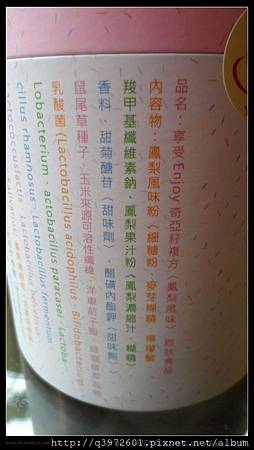 品名：享受Enjoy 奇亞籽複方〈鳳梨風味〉粉狀食品
內容物：鳳梨風味粉〈細糖粉、麥芽糊精、檸檬酸
羧甲基纖維素鈉、鳳梨果汁粉〈鳳梨濃縮汁、糊精〉
香料、甜菊醣苷〈甜味劑〉、醋磺內酯鉀〈甜味劑〉
鼠尾草種子、玉米來源可溶性纖維、洋車前子殼
乳酸菌〈Lactobacillus acidophilus、Bifidobacterium
Lobacterium、actobacillus paracasei、Lactoba-
cillus rhamnosus、Lactobacillus fermentum
http://q3972601.pixnet.net/album